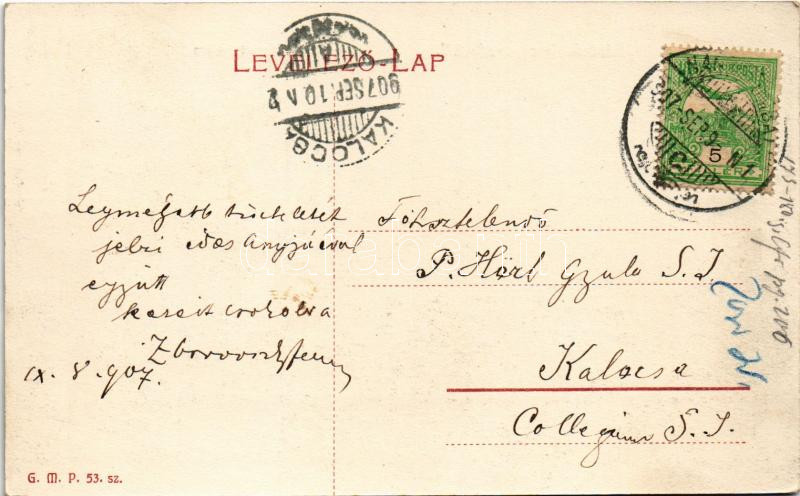 LEVELEZŐ-LAP
KALOCSA
907 SEP. 10
5
Legmélyebb tiszteletét
jelzi édes Anyjával
együtt
kezeit csókolva
IX. 8. 907.
Főtisztelendő
P. Hörl Gyula S. J.
Kalocsa
Collegium S. J.
G. M. P. 53. sz.
darabanth